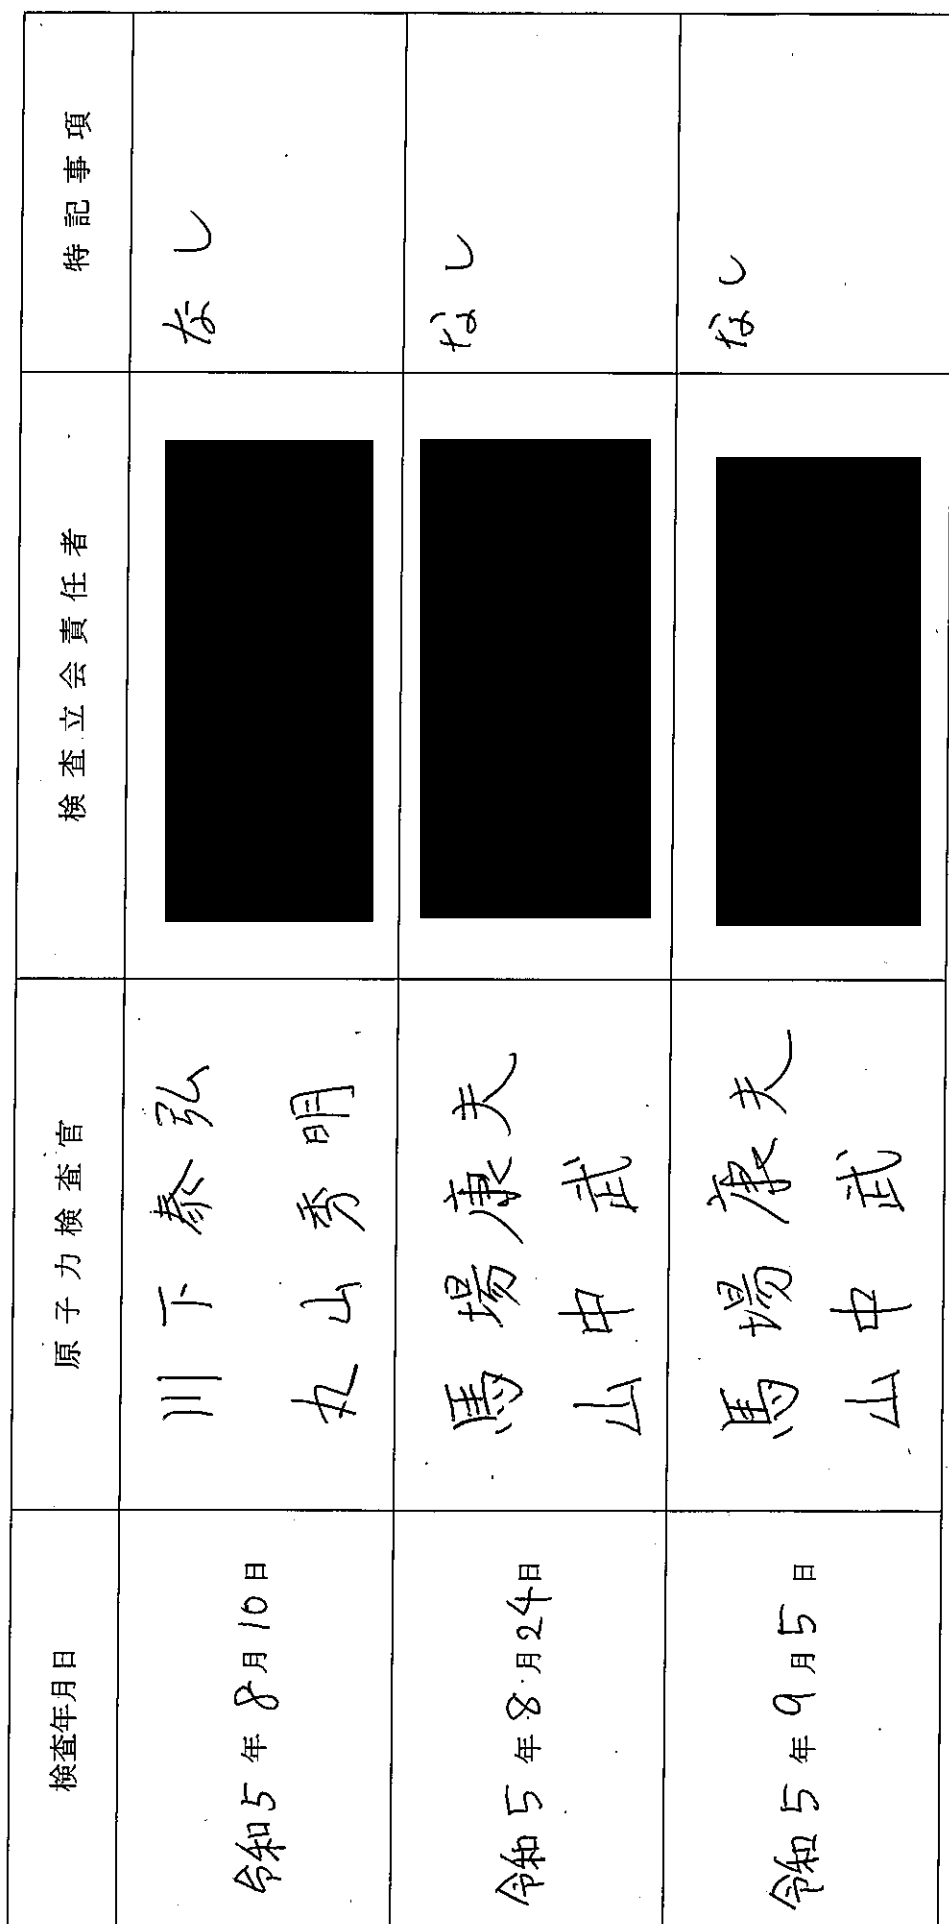 検査年月日 原子力検査官 検査立会責任者 特記事項
令和5年8月10日 川下泰弘 なし
丸山秀明
令和5年8月24日 馬場康夫 なし
山中武
令和5年9月5日 馬場康夫 なし
山中武